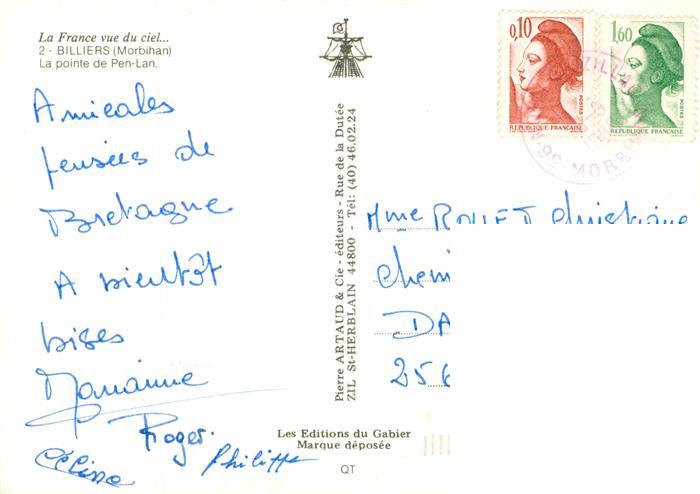 La France vue du ciel...
2 - BILLIERS (Morbihan)
La pointe de Pen-Lan.
Amicales
pensées de
Bretagne
A bientôt
bises
Marianne
Roger.
Céline
Philippe
Pierre ARTAUD & Cie - éditeurs - Rue de la Dutée
ZIL St-HERBLAIN 44800 - Tél: (40) 46.02.24
Les Editions du Gabier
Marque déposée
QT
0,10
POSTES
REPUBLIQUE FRANÇAISE
1,60
POSTES
REPUBLIQUE FRANÇAISE
56-MORBIHAN
Mme ROLLET Christiane
Chemi
DA
256